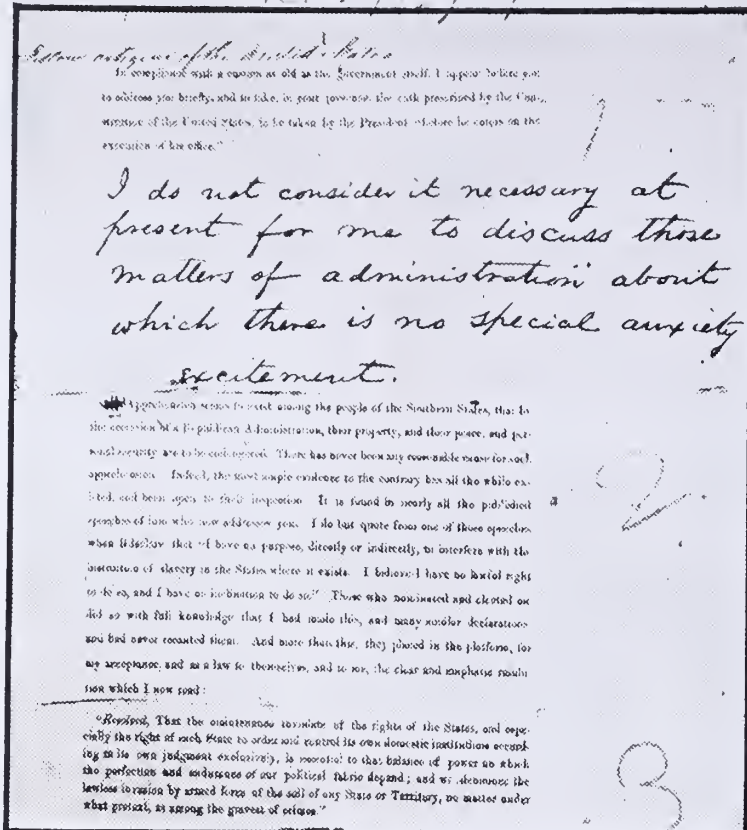 Fellow citizens of the United States
In compliance with a custom as old as the government itself, I appear before you
to address you briefly, and to take, in your presence, the oath prescribed by the Con-
stitution of the United States, to be taken by the President "before he enters on the
execution of his office."
1
I do not consider it necessary at
present for me to discuss those
matters of administration about
which there is no special anxiety
excitement.
Apprehension seems to exist among the people of the Southern States, that by
the accession of a Republican Administration, their property, and their peace, and per-
sonal security are to be endangered. There has never been any reasonable cause for such
apprehension. Indeed, the most ample evidence to the contrary has all the while ex-
isted, and been open to their inspection. It is found in nearly all the published
speeches of him who now addresses you. I do but quote from one of those speeches
when I declare that "I have no purpose, directly or indirectly, to interfere with the
institution of slavery in the States where it exists. I believe I have no lawful right
to do so, and I have no inclination to do so." Those who nominated and elected me
did so with full knowledge that I had made this, and many similar declarations
and had never recanted them. And more than this, they placed in the platform, for
my acceptance, and as a law to themselves, and to me, the clear and emphatic resolu-
tion which I now read:
2
"Resolved, That the maintenance inviolate of the rights of the States, and espe-
cially the right of each State to order and control its own domestic institutions accord-
ing to its own judgment exclusively, is essential to that balance of power on which
the perfection and endurance of our political fabric depend; and we denounce the
lawless invasion by armed force of the soil of any State or Territory, no matter under
what pretext, as among the gravest of crimes."
3